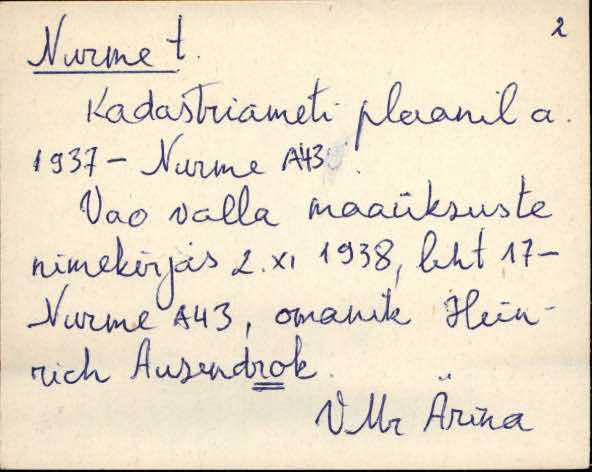 2
Nurme t.
Kadastriameti plaanil a.
1937 - Nurme A43
Vao valla maaüksuste
nimekirjas 2. XI 1938, leht 17 -
Nurme A43, omanik Hein-
rich Ausendrok.
VMr Ärina